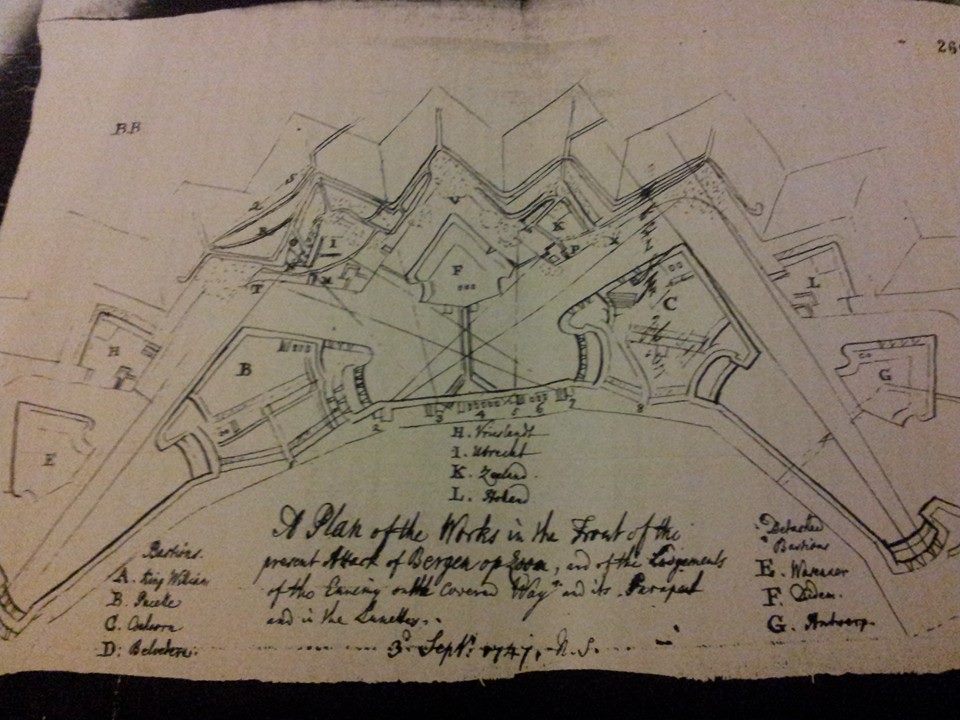 26
BB
S
2
R
I
T
V
K
P
X
F
H
B
C
L
G
E
2 3 4 5 6 7 8
H. Vrieslandt
I. Utrecht
K. Zeeland.
L. Holland
A Plan of the Works in the Front of the
present Attack of Bergen op Zoom, and of the Lodgements
of the Enemy on the Covered Way and its Parapet
and in the Lunettes.
3d Sept: 1747. N.S.
Bastions.
A. King William
B. Pucelle
C. Coehorn
D: Belvedere.
Detached
Bastions
E. Wassenaer
F. Leiden.
G. Antwerp.